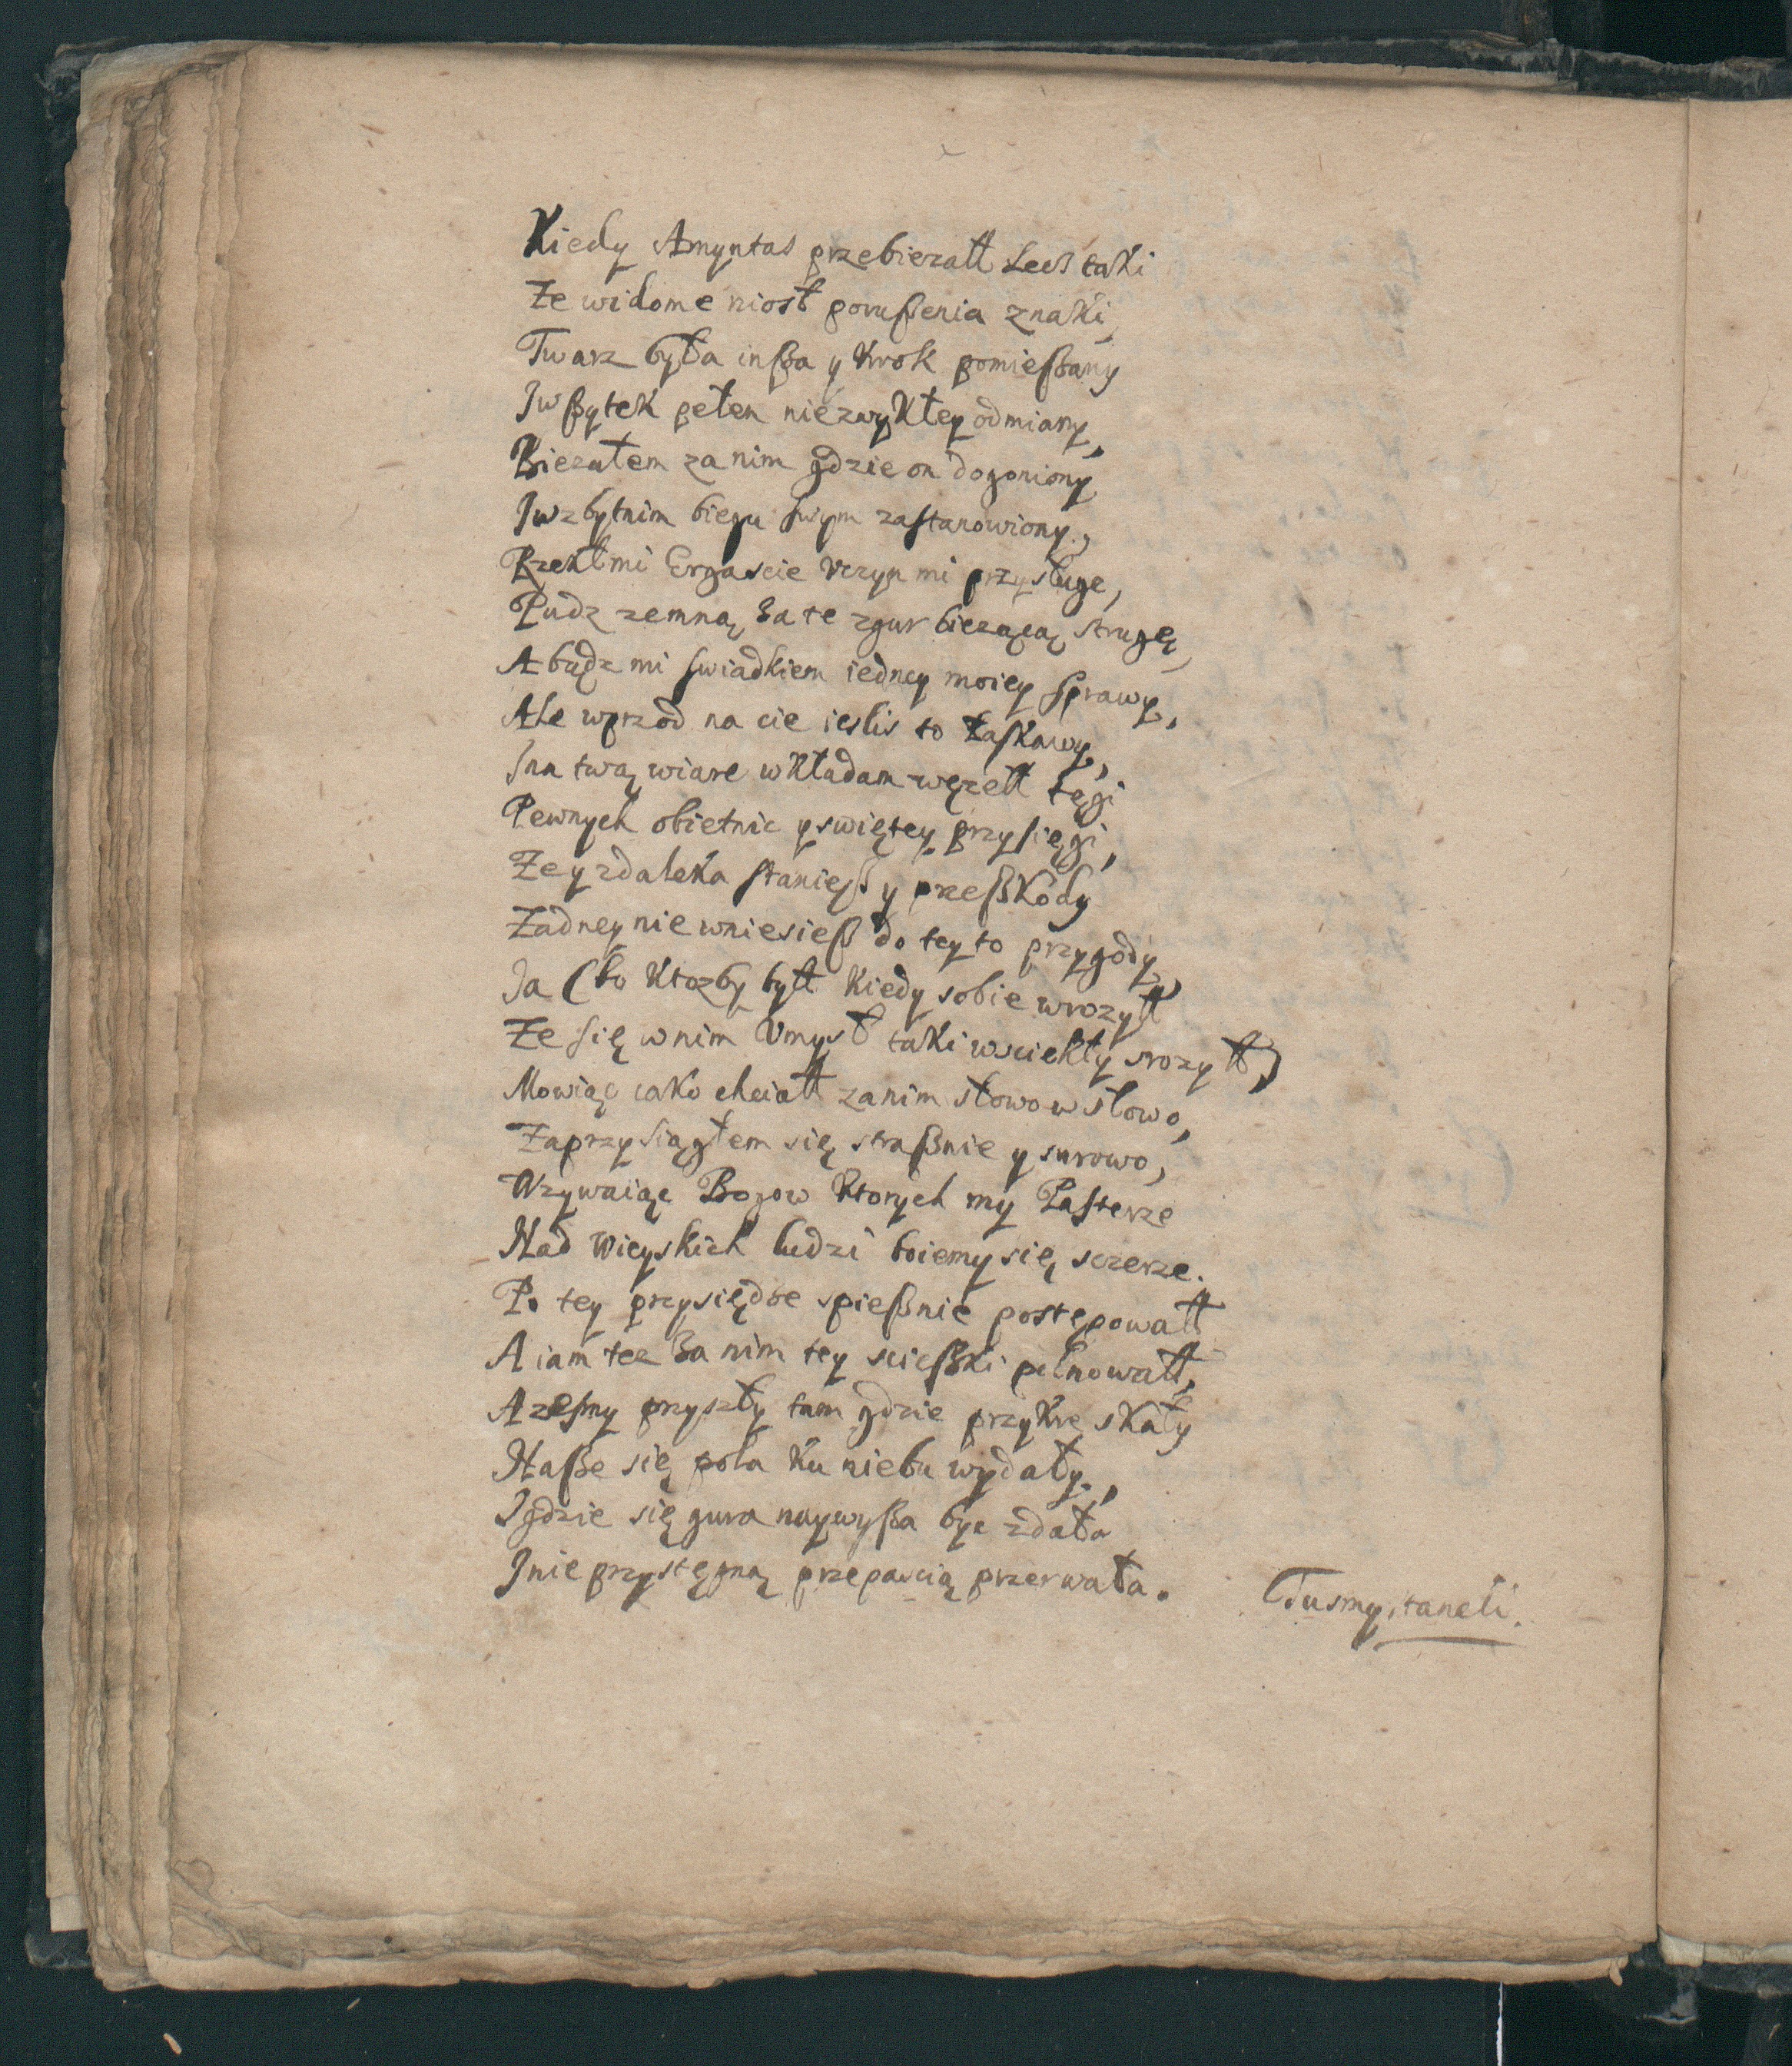 Kiedy Amyntas przebiezałł Lecz taki
Ze widome niosł porußenia znaki,
Twarz była inßa y Krok pomießany
Iwßytek pełen niezwykłey odmiany,
Biezałem za nim gdzie on dogoniony
Iwzbytnim biegu swym zastanowiony,
Rzekł mi Ergascie Uczyn mi przysługe,
Pudz zemną za te zgur biezącą strugę,
A bądz mi swiadkiem iedney moiey sprawy,
Ale wprzod na cie iesliś to łaskawy,
Ina twą wiare wkładam węzełł tęgi
Pewnych obietnic y swiętey przysięgi,
Ze y zdaleka stanieß y przeßkody
Zadney nie wniesieß do tey to przygody,
Ja (bo Ktozby byłł kiedy sobie wrozyłł
Ze się wnim Umysł taki wsciekły srozyłł)
Mowiąc iako chciałł zanim słowo w słowo,
Zaprzysiągłem się straßnie y surowo,
Wzywaiąc Bogow Ktorych my Pasterze
Nad Wieyskich ludzi boiemy się sczerze.
Po tey przysiędze spießnie postępowałł
A iam tez za nim tey scießki pilnowałł,
Azesmy przyszły tam gdzie przykre skały
Naße się pola ku niebu wydały,
Igdzie się gura naywyßa byc zdała
Inie przystępną przepascią przerwała.
Tusmy staneli.